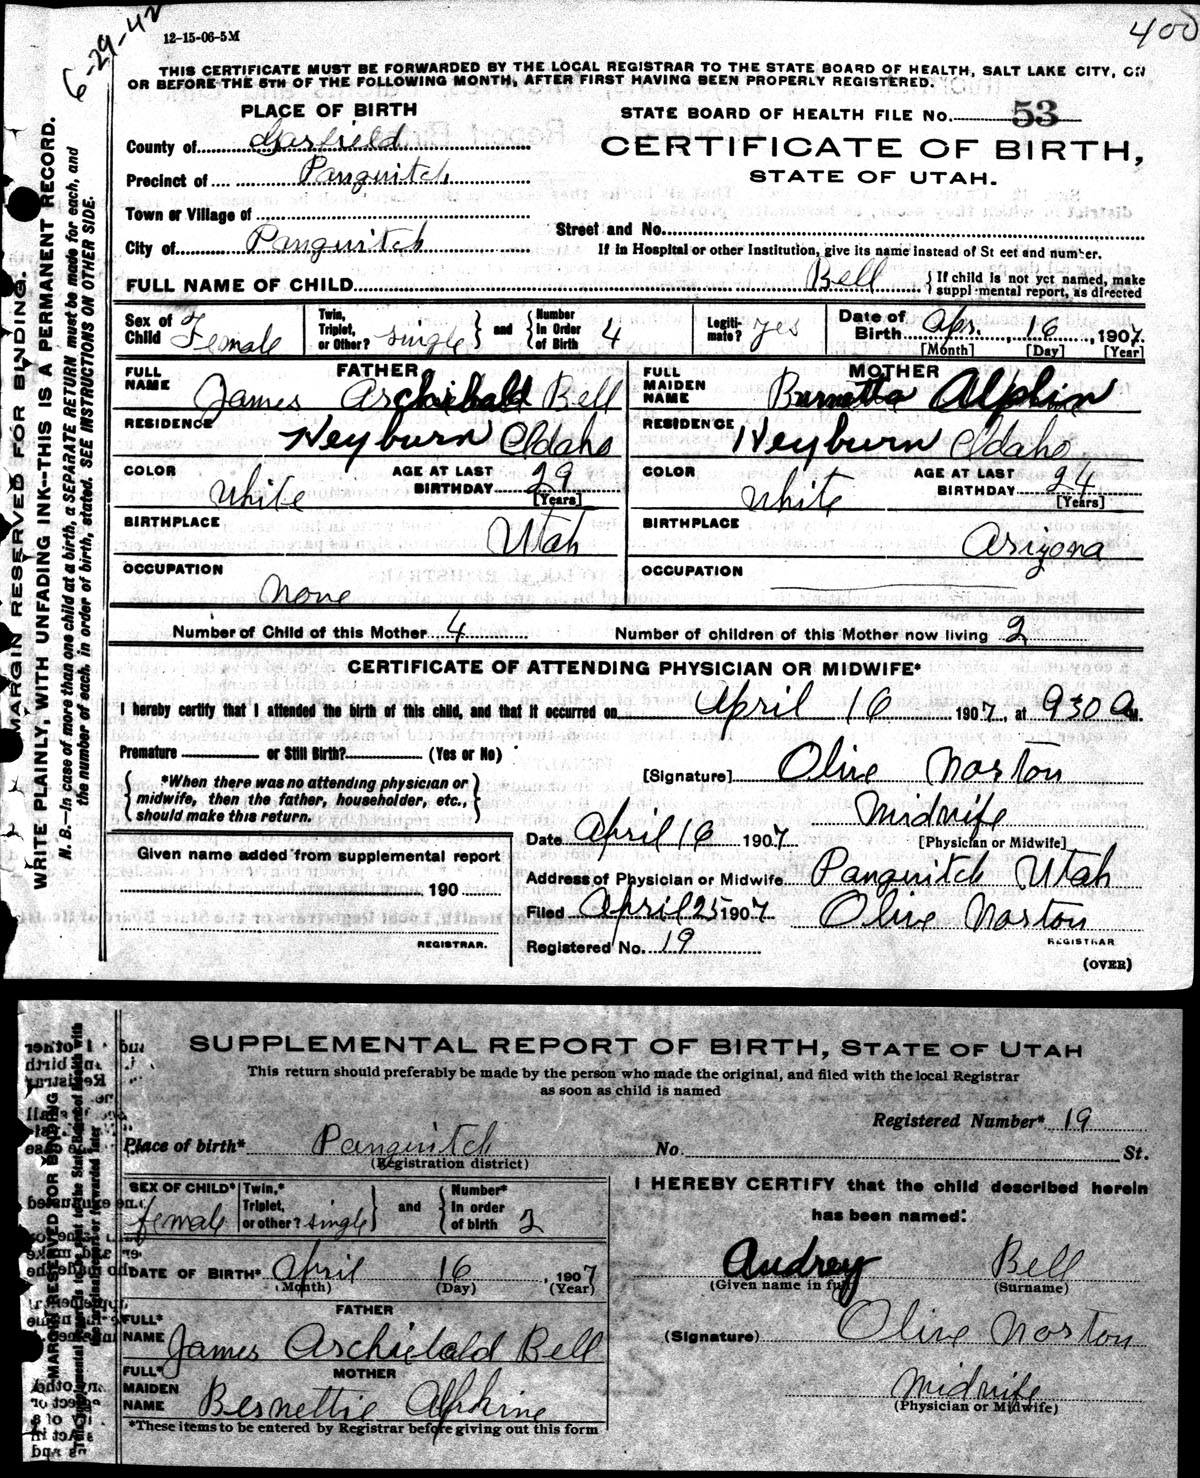 6-29-42
12-15-06-5M
400
THIS CERTIFICATE MUST BE FORWARDED BY THE LOCAL REGISTRAR TO THE STATE BOARD OF HEALTH, SALT LAKE CITY, ON
OR BEFORE THE 5TH OF THE FOLLOWING MONTH, AFTER FIRST HAVING BEEN PROPERLY REGISTERED.
PLACE OF BIRTH
County of Garfield
Precinct of Panguitch
Town or Village of
City of Panguitch
STATE BOARD OF HEALTH FILE No. 53
CERTIFICATE OF BIRTH,
STATE OF UTAH.
Street and No.
If in Hospital or other Institution, give its name instead of St eet and number.
FULL NAME OF CHILD Bell {If child is not yet named, make
suppl mental report, as directed
Sex of Child Female
Twin, Triplet, or Other? single } and { Number in Order of Birth 4
Legiti-mate? yes
Date of Birth Apr. 16, 1907.
[Month] [Day] [Year]
FATHER
FULL NAME James Archibald Bell
RESIDENCE Heyburn Idaho
COLOR White AGE AT LAST BIRTHDAY 29 [Years]
BIRTHPLACE Utah
OCCUPATION None
MOTHER
FULL MAIDEN NAME Burnetta Alphin
RESIDENCE Heyburn Idaho
COLOR White AGE AT LAST BIRTHDAY 24 [Years]
BIRTHPLACE Arizona
OCCUPATION
Number of Child of this Mother 4 Number of children of this Mother now living 2
CERTIFICATE OF ATTENDING PHYSICIAN OR MIDWIFE*
I hereby certify that I attended the birth of this child, and that it occurred on April 16 1907, at 930 A M.
Premature or Still Birth? (Yes or No)
{ *When there was no attending physician or
midwife, then the father, householder, etc.,
should make this return. }
[Signature] Olive Norton
Midwife
[Physician or Midwife]
Date April 16 1907
Given name added from supplemental report
190
REGISTRAR.
Address of Physician or Midwife Panguitch Utah
Filed April 25 1907 Olive Norton
REGISTRAR
Registered No. 19
(OVER)
MARGIN RESERVED FOR BINDING.
WRITE PLAINLY, WITH UNFADING INK--THIS IS A PERMANENT RECORD.
N. B.--In case of more than one child at a birth, a SEPARATE RETURN must be made for each, and
the number of each, in order of birth, stated. SEE INSTRUCTIONS ON OTHER SIDE.
SUPPLEMENTAL REPORT OF BIRTH, STATE OF UTAH
This return should preferably be made by the person who made the original, and filed with the local Registrar
as soon as child is named
Registered Number* 19
Place of birth* Panguitch No. St.
(Registration district)
SEX OF CHILD* female
Twin,* Triplet, or other? single } and { Number* In order of birth 2
DATE OF BIRTH* April 16, 1907
(Month) (Day) (Year)
FATHER
FULL* NAME James Archibald Bell
MOTHER
FULL* MAIDEN NAME Bernettie Alphine
*These items to be entered by Registrar before giving out this form
I HEREBY CERTIFY that the child described herein
has been named:
Audrey Bell
(Given name in full) (Surname)
(Signature) Olive Norton
Midwife
(Physician or Midwife)
MARGIN RESERVED FOR BINDING